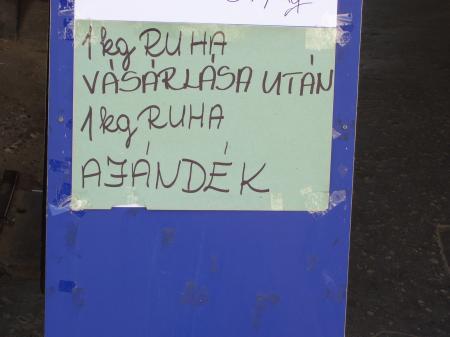 1 kg RUHA
VÁSÁRLÁSA UTÁN
1 kg RUHA
AJÁNDÉK